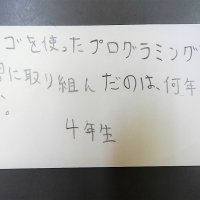 ゴを使ったプログラミング
に取り組んだのは、何年
。
4年生